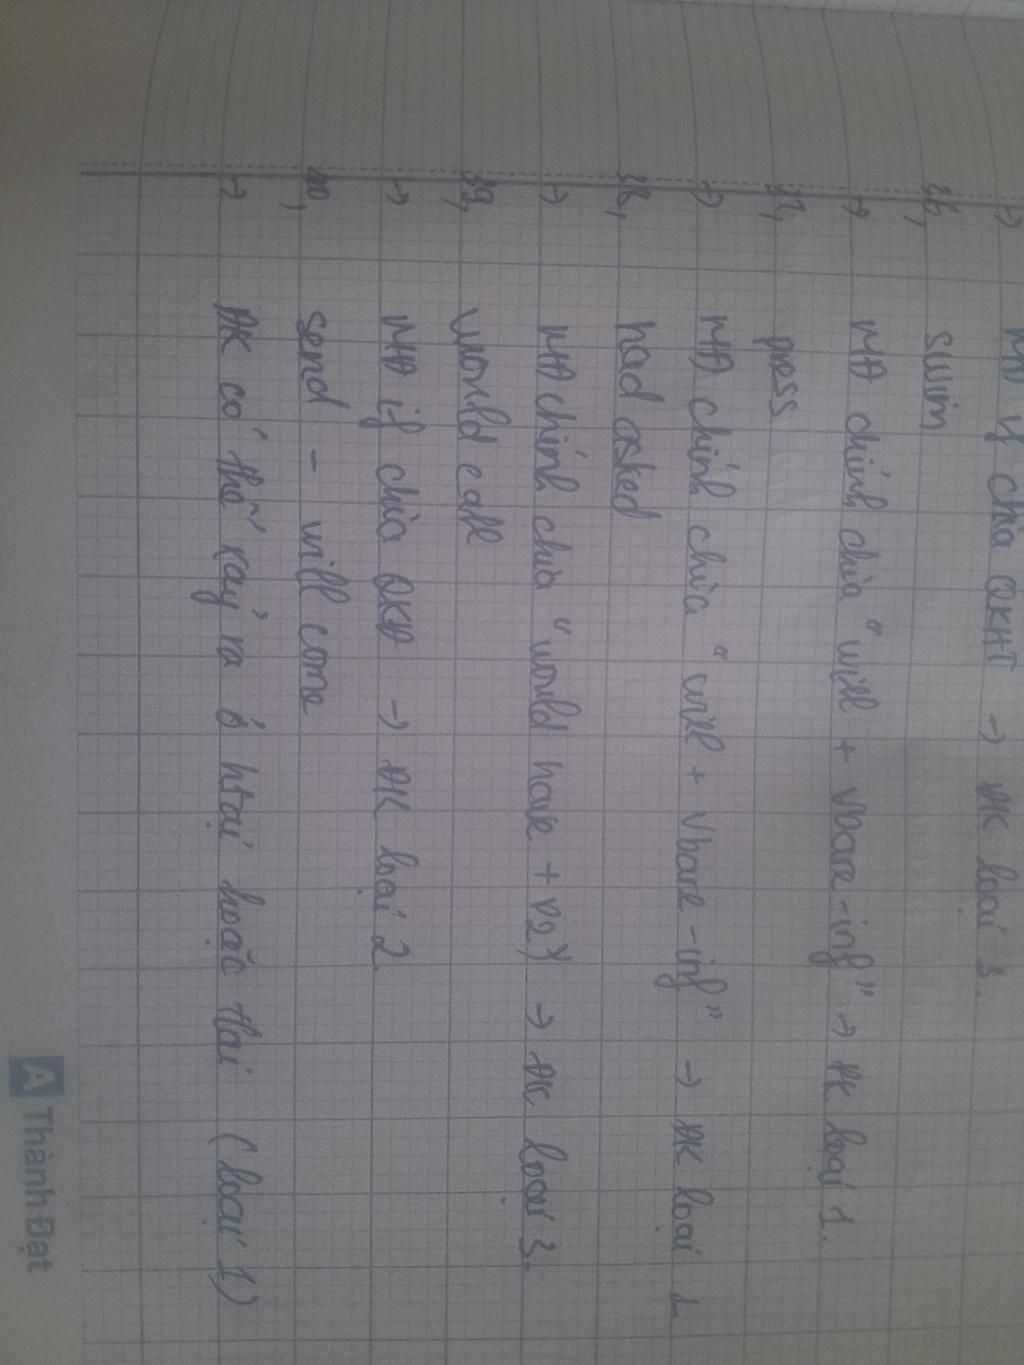 → MĐ if chia QKHT → ĐK loại 3.
36, swim
→ MĐ chính chia "will + Vbare-inf" → ĐK loại 1.
37, press
→ MĐ chính chia "will + Vbare-inf" → ĐK loại 1
38, had asked
→ MĐ chính chia "would have + P2) → ĐK loại 3.
39, would call
→ MĐ if chia QKĐ → ĐK loại 2
40, send - will come
→ ĐK có thể xảy ra ở htại hoặc tlai (loại 1)
A Thành Đạt